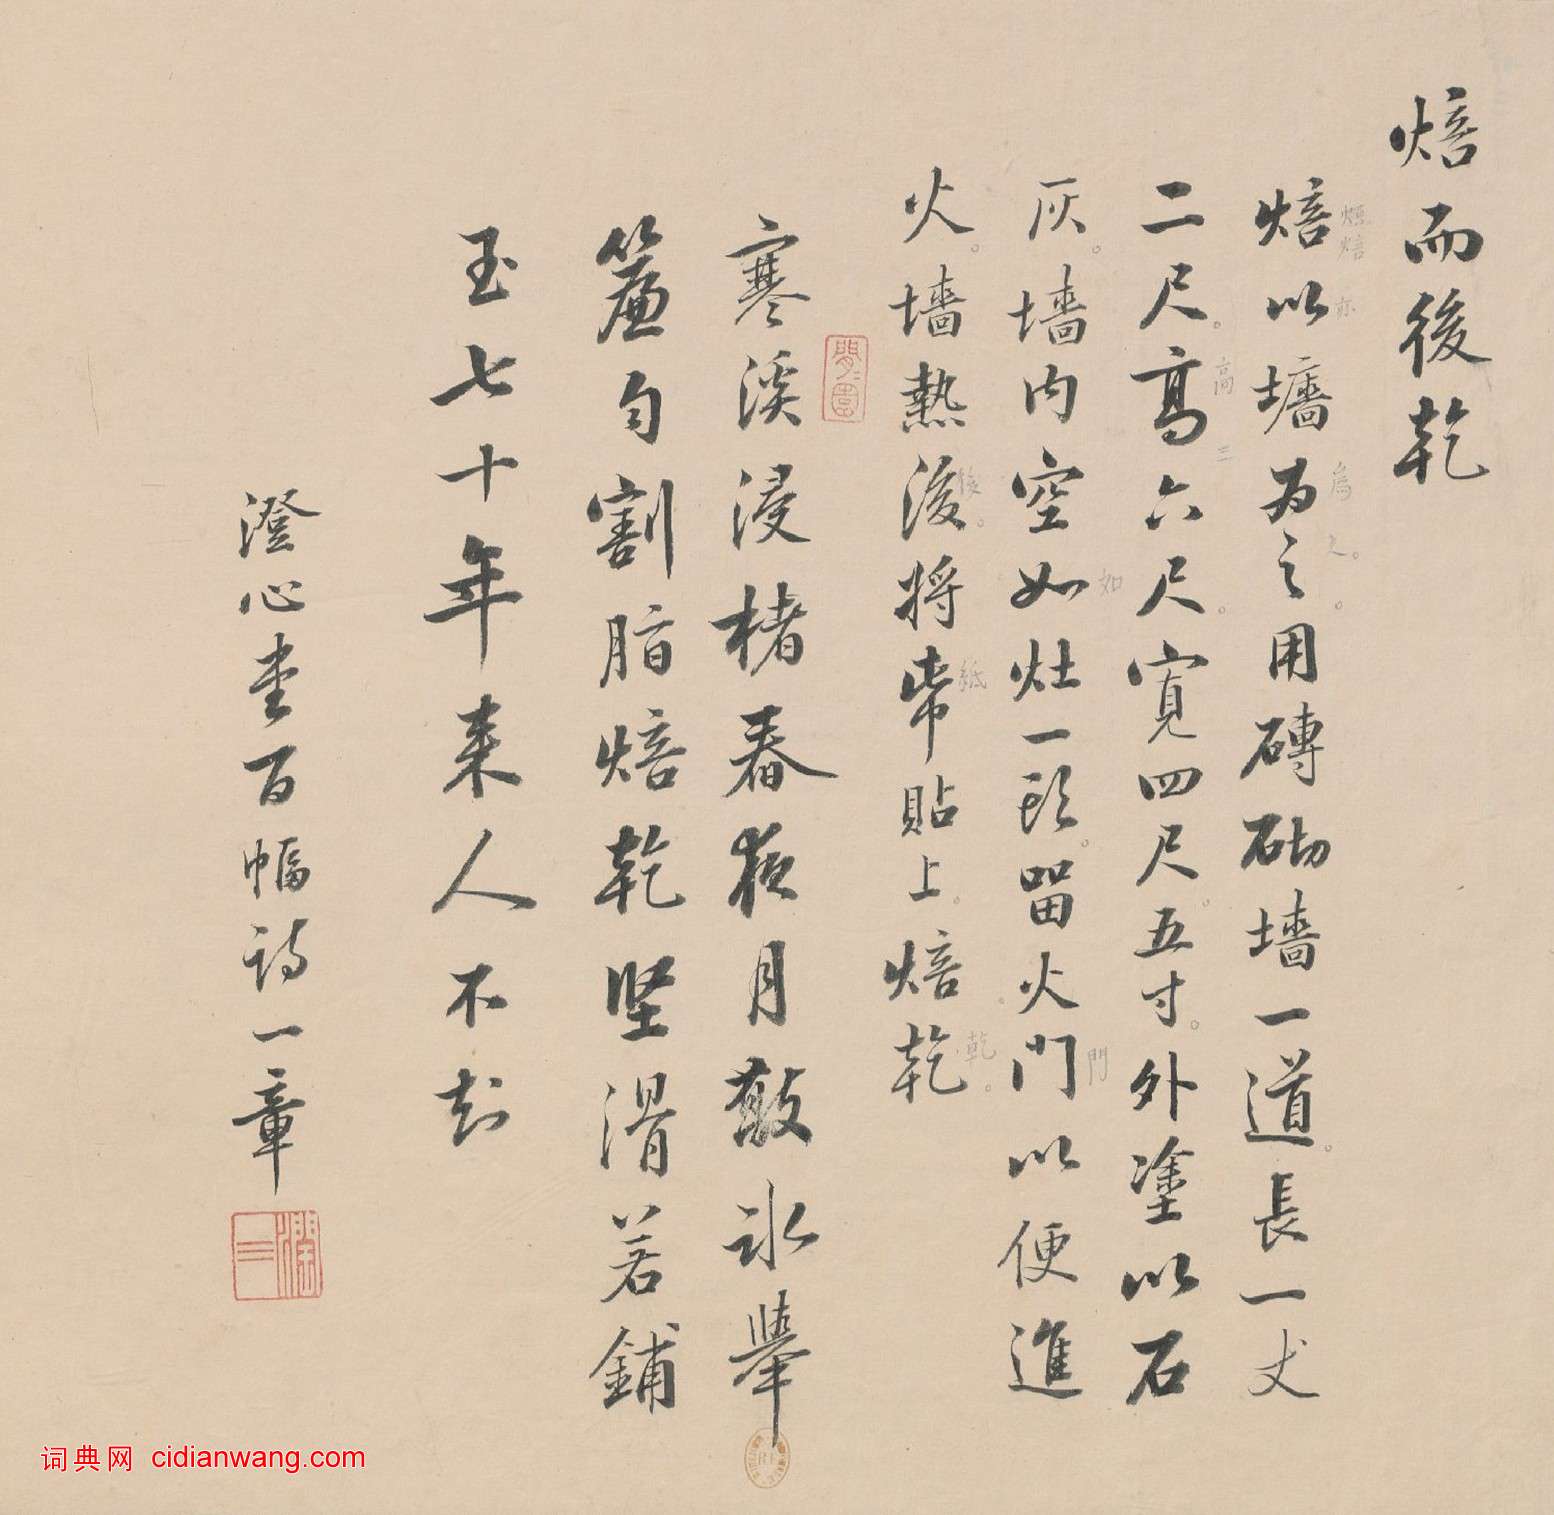 焙而後乾
焙以墻為之用磚砌墙一道長一丈
二尺。高六尺。寬四尺。五寸。外塗以石
灰。墻内空如灶一頭。留火門以便進
火。墻熱後。將帋貼上。焙乾
寒溪浸楮舂夜月敲冰舉
簾匀割脂焙乾坚滑若鋪
玉七十年来人不知
澄心堂百幅詩一章
焙
亦
為
之。
高
三
如
門
後。
紙
乾。
词典网 cidianwang.com